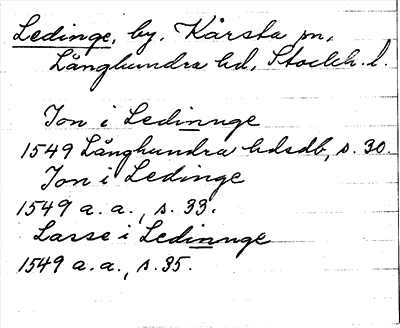 Ledinge, by. Kårsta sn,
Långhundra hd, Stockh. l.
Jon i Ledinnge
1549 Långhundra hdsdb, s. 30.
Jon i Ledinge
1549 a. a., s. 33.
Lasse i Ledinnge
1549 a. a., s. 35.